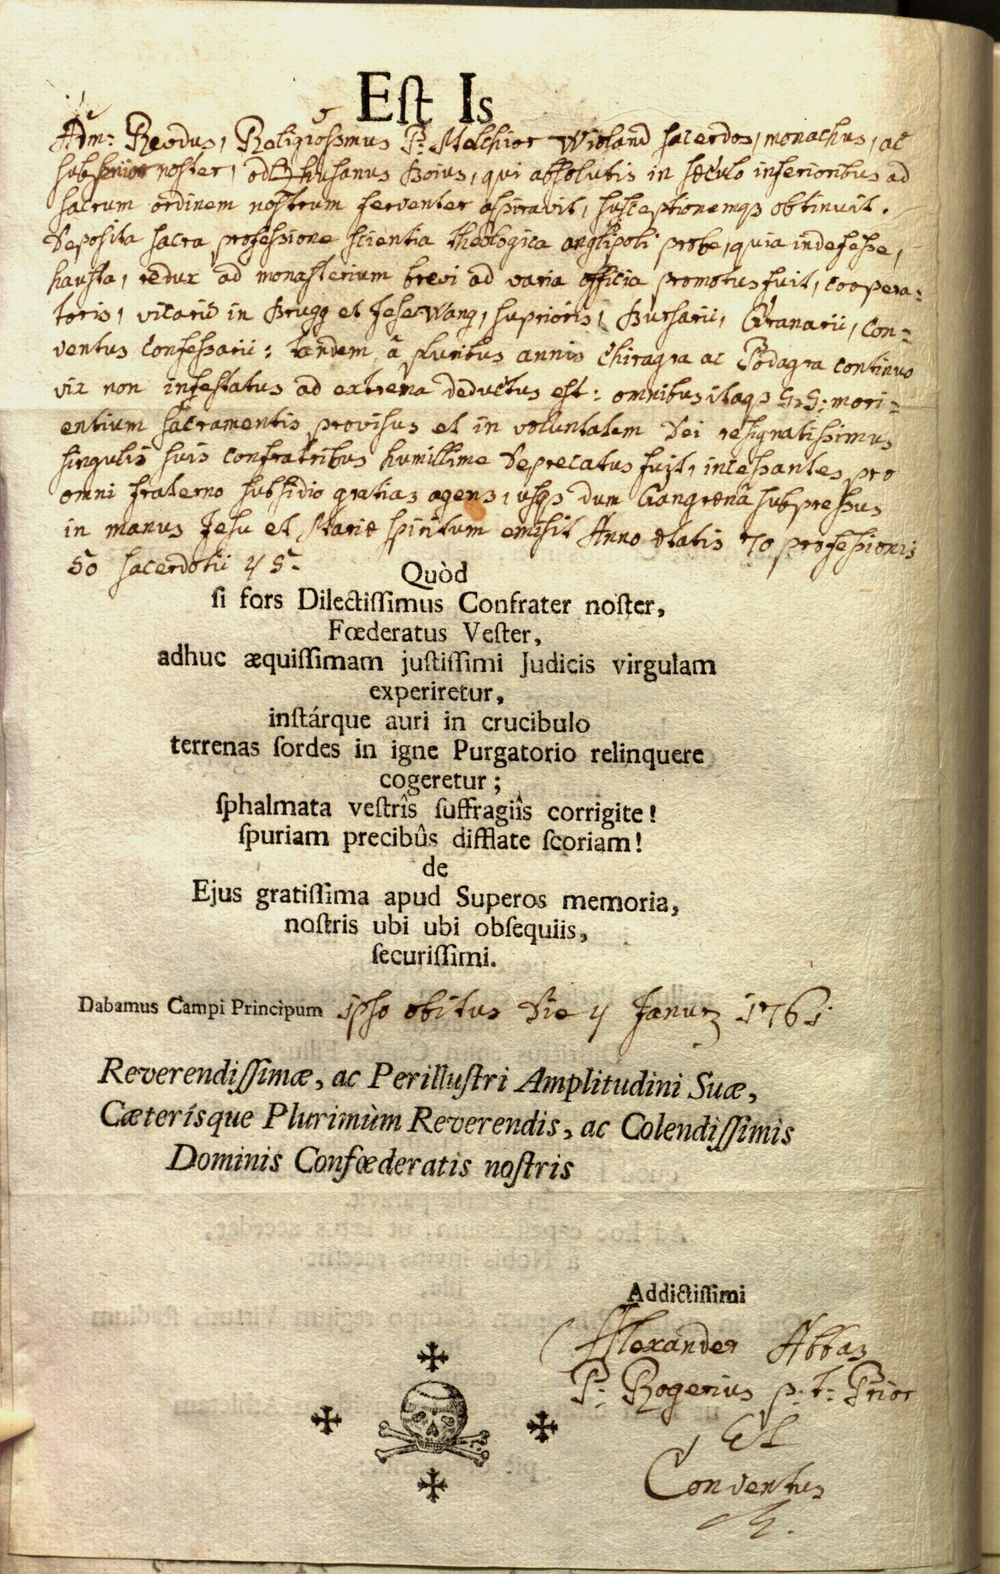 Eſt Is
Adm: Revdus, Religiossmus P: Melchior Wieland sacerdos, monachus, ac
noster, Boius, qui absolutis in sæculo inferioribus ad
sacrum ordinem nostrum ferventer aspiravit, susceptionemqꝫ obtinuit.
Deposita sacra professione scientia theologica anglipoli probe, quia indefesse,
hausta, redux ad monasterium brevi ad varia officia promotus fuit, coopera:
toris, vicarii in Brugg et Jesewang, suprioris, Bursarii, Granarii, con=
ventus confessarii: tandem â pluribus annis chiragra ac Podagra continuo
vix non infestatus ad extrema deductus est: omnibus itaqꝫ mori=
entium sacramentis provisus et in voluntatem Dei resignatissimus
singulis suis confratribus humillime deprecatus fuit, incessantes pro
omni fraterno subsidio gratias agens, usqꝫ dum Gangrænâ subpressus
in manus Jesu et Mariæ spiritum emisit Anno ætatis 70 professionis
50 sacerdotii 45.
Quòd
ſi fors Dilectiſſimus Confrater noſter,
Fœderatus Veſter,
adhuc æquiſſimam juſtiſſimi Judicis virgulam
experiretur,
inſtárque auri in crucibulo
terrenas ſordes in igne Purgatorio relinquere
cogeretur;
ſphalmata veſtrîs ſuffragiîs corrigite!
ſpuriam precibûs difflate ſcoriam!
de
Ejus gratiſſima apud Superos memoria,
noſtris ubi ubi obſequiis,
ſecuriſſimi.
Dabamus Campi Principum ipso obitus die 4 Januarii 1761.
Reverendiſſimæ, ac Perilluſtri Amplitudini Suæ,
Cæterísque Plurimùm Reverendis, ac Colendiſſimis
Dominis Confœderatis noſtris
Addictiſſimi
Alexander Abbas
P: Rogerius p: t: Prior
Et
Conventus